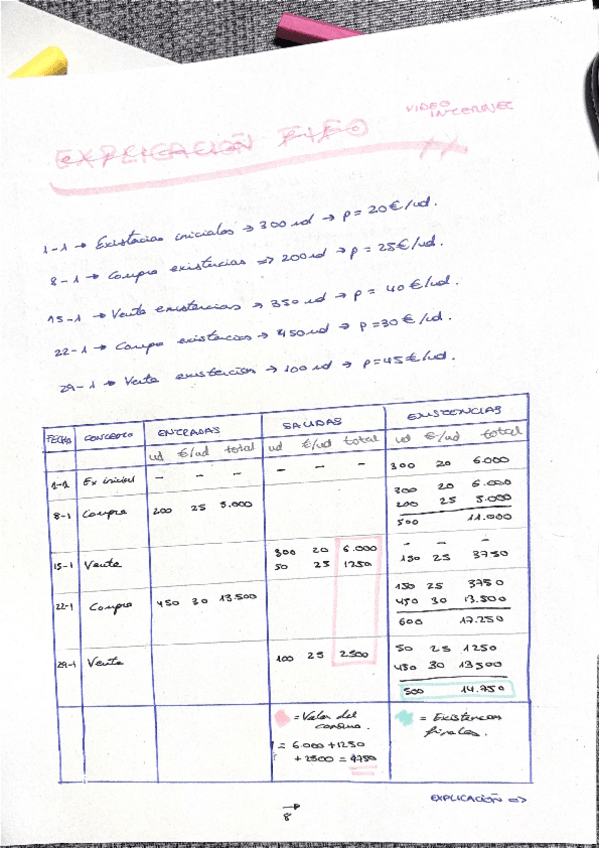 VIDEO
INTERNET
EXPLICACIÓN FIFO
1-1 → Existencias iniciales → 300 ud → p = 20€/ud.
8-1 → Compra existencias => 200 ud → p = 25€/ud.
15-1 → Venta existencias → 350 ud → p = 40€/ud.
22-1 → Compra existencias → 450 ud → p = 30€/ud.
29-1 → Venta existencias → 100 ud → p = 45€/ud.
FECHA CONCEPTO ENTRADAS SALIDAS EXISTENCIAS
ud €/ud total ud €/ud total ud €/ud total
1-1 Ex inicial - - - - - - 300 20 6.000
300 20 6.000
8-1 Compra 200 25 5.000 200 25 5.000
500 11.000
300 20 6.000 - - -
15-1 Venta 50 25 1250 150 25 3750
150 25 3750
22-1 Compra 450 30 13.500 450 30 13.500
600 17.250
50 25 1250
29-1 Venta 100 25 2500 450 30 13500
500 14.750
= Valor del consumo. = Existencias finales.
= 6.000 + 1250
+ 2500 = 9750
EXPLICACIÓN =>
8